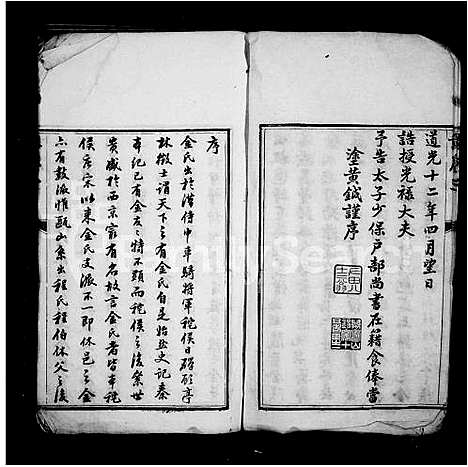 道光十二年四月望日
誥授光祿大夫
予告太子少保戶部尚書在籍食俸當
塗黃鉞謹序
序
金氏出於漢侍中車騎將軍秺侯日磾顧亭
林徵士謂天下之有金氏自是始並史記秦
本紀已有金友之特不顯而秺侯之後累世
貴盛於西京最有名故言金氏者皆本秺
侯唐宋以來金氏支派不一即休邑之金
亦有數派惟甌山系出程氏程伯休父之後
FamilySearch